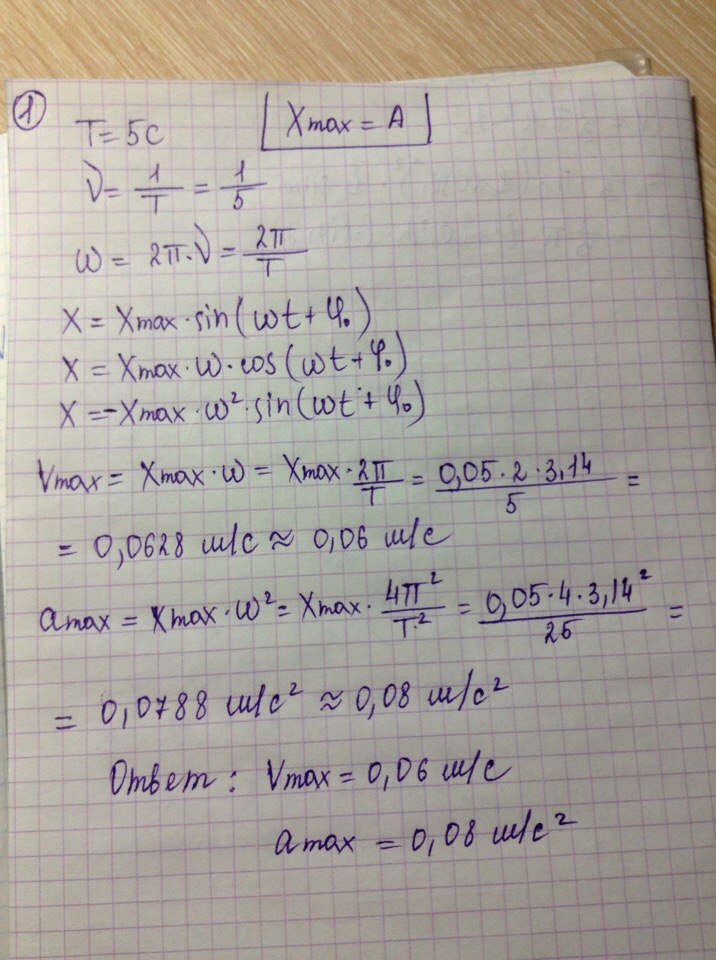 1
T = 5с
Xmax = A
ν = 1/T = 1/5
ω = 2π·ν = 2π/T
X = Xmax·sin(ωt + φ₀)
X = Xmax·ω·cos(ωt + φ₀)
X = -Xmax·ω²·sin(ωt + φ₀)
Vmax = Xmax·ω = Xmax·2π/T = 0,05·2·3,14/5 =
= 0,0628 м/с ≈ 0,06 м/с
amax = Xmax·ω² = Xmax·4π²/T² = 0,05·4·3,14²/25 =
= 0,0788 м/с² ≈ 0,08 м/с²
Ответ: Vmax = 0,06 м/с
amax = 0,08 м/с²